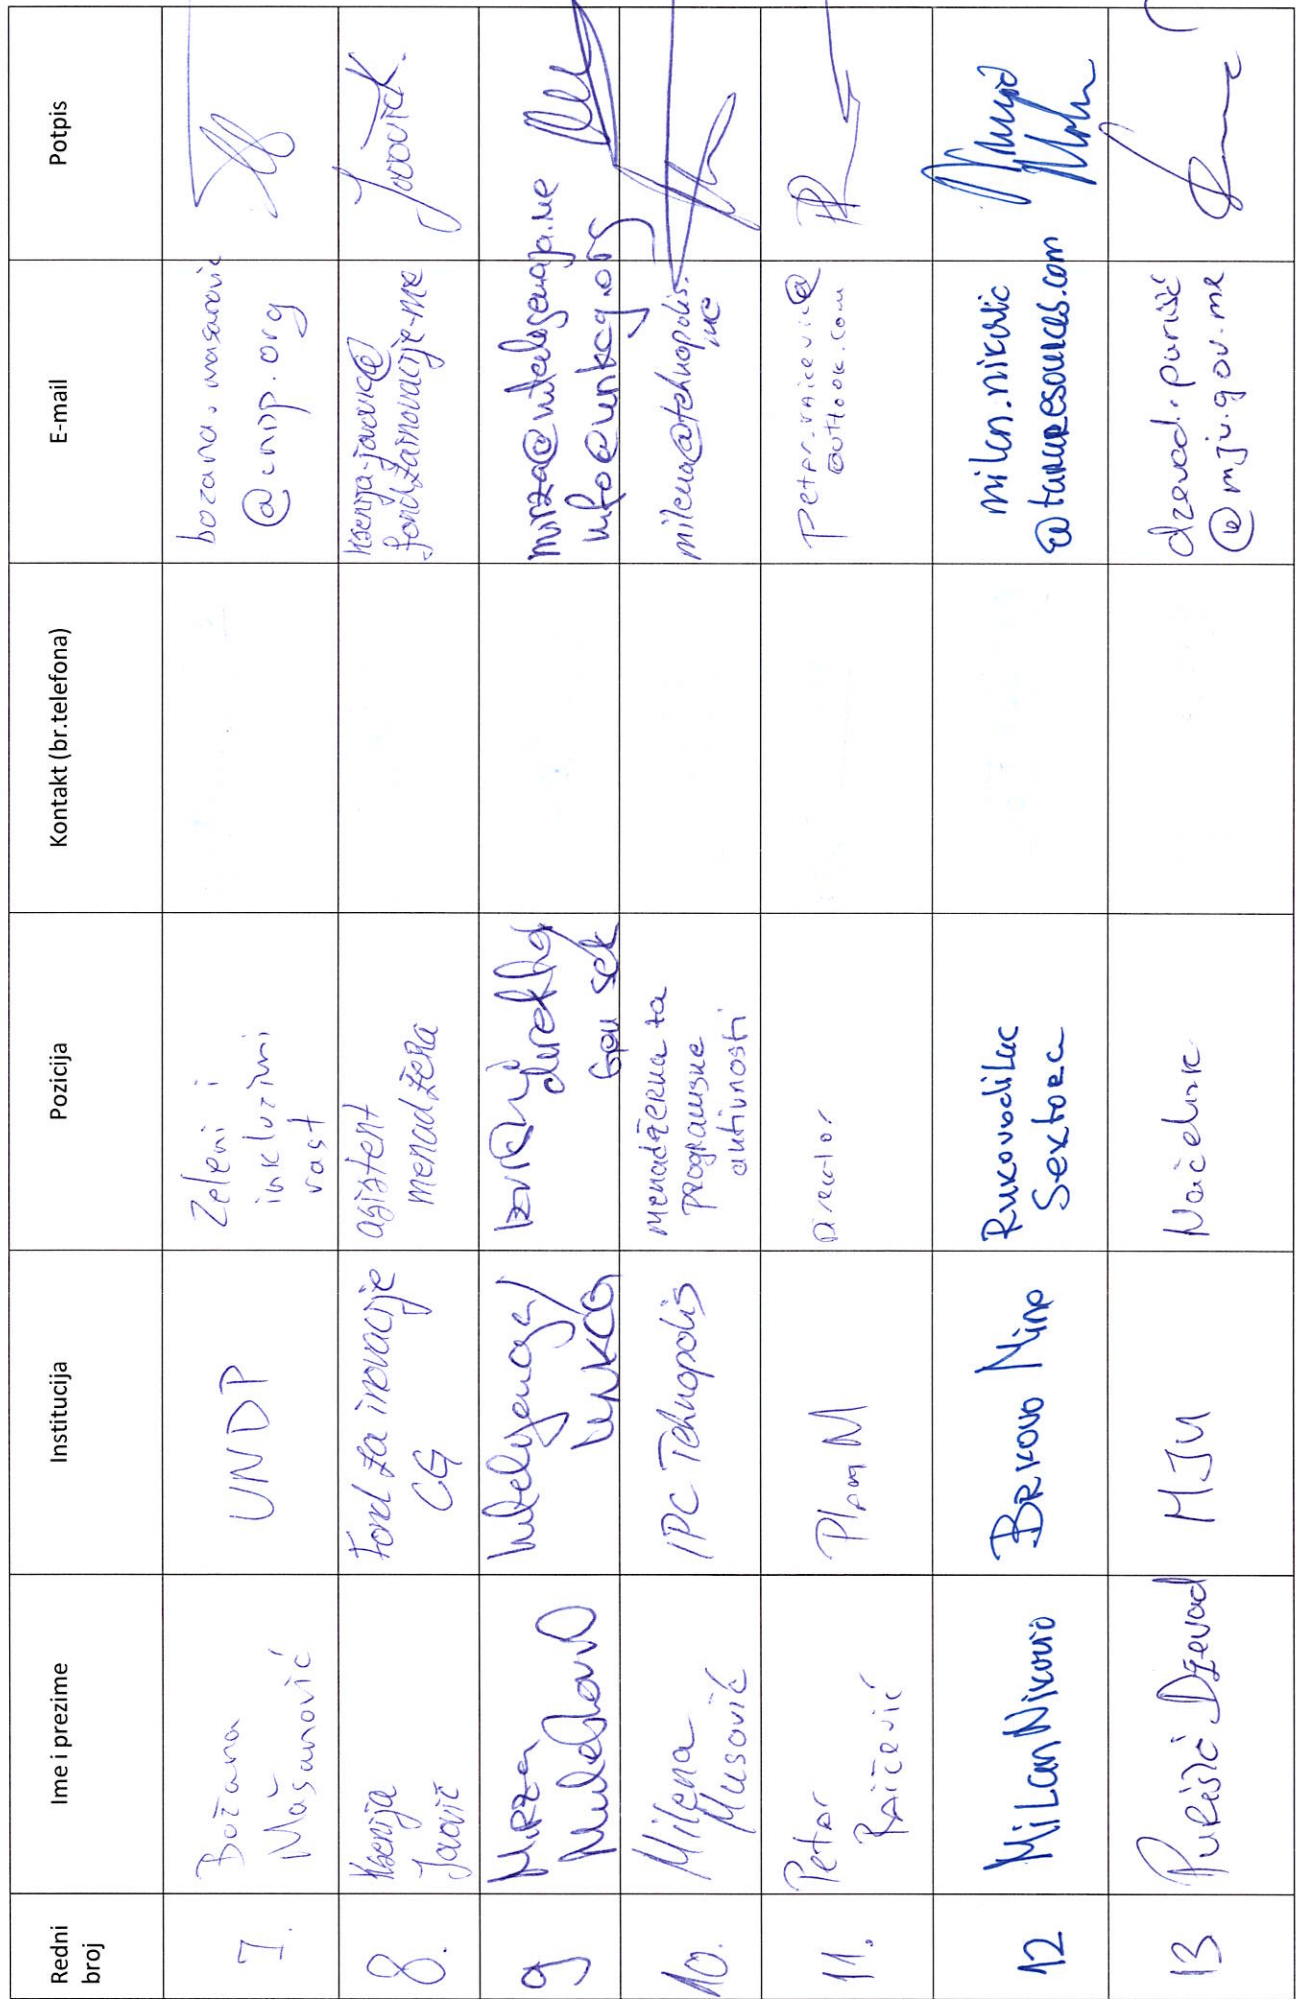 Redni
broj
Ime i prezime
Institucija
Pozicija
Kontakt (br.telefona)
E-mail
Potpis
7.
Božana
Mašanović
UNDP
Zeleni i
inkluzivni
rast
bozana.masanovic
@undp.org
8.
Ksenija
Jaović
Fond za inovacije
CG
asistent
menadžera
ksenija.jaovic@
fondzainovacije.me
9
Mirza
Izvršni
direktor
Gen sek
info@unkcg.org
10.
Milena
Musović
IPC Tehnopolis
menadžerka za
programske
aktivnosti
milena@tehnopolis.
me
11.
Petar
Raičević
Plan M
Direktor
petar.raicevic@
outlook.com
12
Milan Nikolić
Brkovo Mine
Rukovodilac
Sektora
milan.nikolic
@tararesources.com
13
Purišić Dževad
MJU
Načelnik
dzevad.purisic
@mju.gov.me